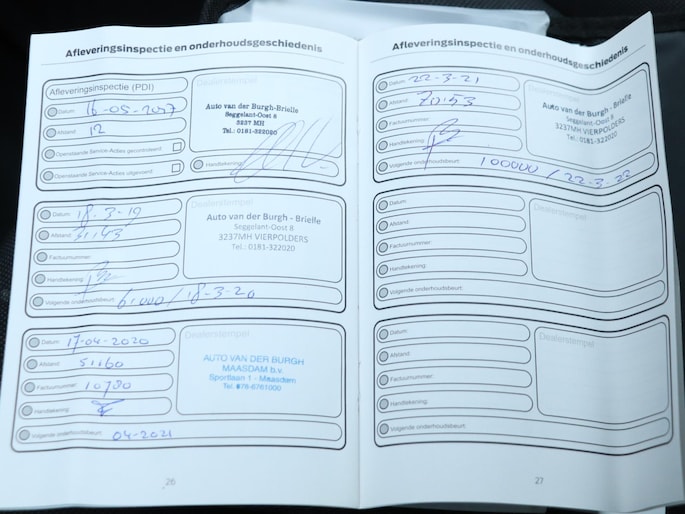 Afleveringsinspectie en onderhoudsgeschiedenis
Afleveringsinspectie (PDI)
Datum: 16-05-2017
Afstand: 12
Operationele Service-Acties gecontroleerd:
Operationele Service-Acties uitgevoerd:
Dealerstempel
Auto van der Burgh-Brielle
Seggelant-Oost 8
3237 MH
Tel.: 0181-322020
Handtekening:
Datum: 18-3-19
Afstand:
Factuurnummer:
Handtekening:
Volgende onderhoudsbeurt: 61000/18-3-20
Dealerstempel
Auto van der Burgh - Brielle
Seggelant-Oost 8
3237MH VIERPOLDERS
Tel.: 0181-322020
Datum: 17-04-2020
Afstand: 51160
Factuurnummer: 10780
Handtekening:
Volgende onderhoudsbeurt: 04-2021
Dealerstempel
AUTO VAN DER BURGH
MAASDAM b.v.
Sportlaan 1 - Maasdam
Tel. 078-6761000
26
Afleveringsinspectie en onderhoudsgeschiedenis
Datum: 22-3-21
Afstand: 70.53
Factuurnummer:
Handtekening:
Volgende onderhoudsbeurt: 100000/22-3-22
Dealerstempel
Auto van der Burgh - Brielle
Seggelant-Oost 8
3237MH VIERPOLDERS
Tel.: 0181-322020
Datum:
Afstand:
Factuurnummer:
Handtekening:
Volgende onderhoudsbeurt:
Dealerstempel
Datum:
Afstand:
Factuurnummer:
Handtekening:
Volgende onderhoudsbeurt:
Dealerstempel
27